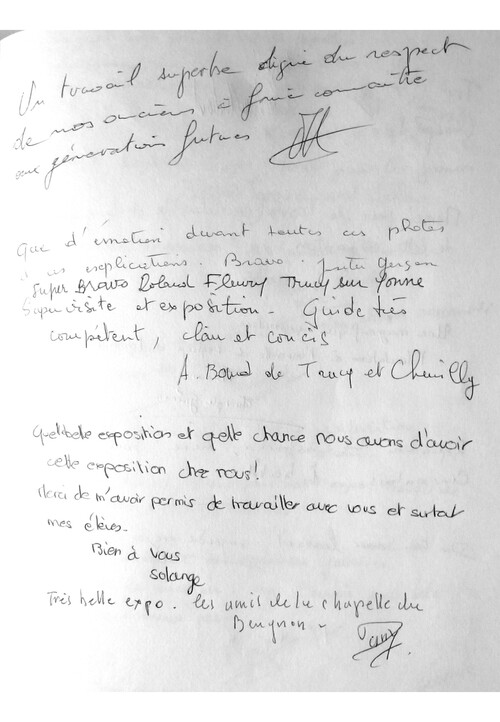 Un travail superbe digne du respect
de nos anciens à faire connaitre
aux générations futures
Que d'émotion devant toutes ces photos
et ces explications. Bravo.
Super BRAVO Roland Fleury Trucy sur Yonne
Super visite et exposition - Guide très
compétent, clair et concis
A. de Trucy et
Quelle belle exposition et quelle chance nous avons d'avoir
cette exposition chez nous!
Merci de m'avoir permis de travailler avec vous et surtout
mes élèves.
Bien à vous
Solange
Très belle expo. les amis de la chapelle du